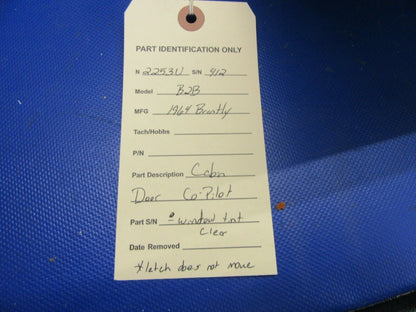 PART IDENTIFICATION ONLY
N 2253U S/N 412
Model B2B
MFG 1964 Brantly
Tach/Hobbs
P/N
Part Description Cabin
Door Co-Pilot
Part S/N window tint
Clear
Date Removed
*latch does not move